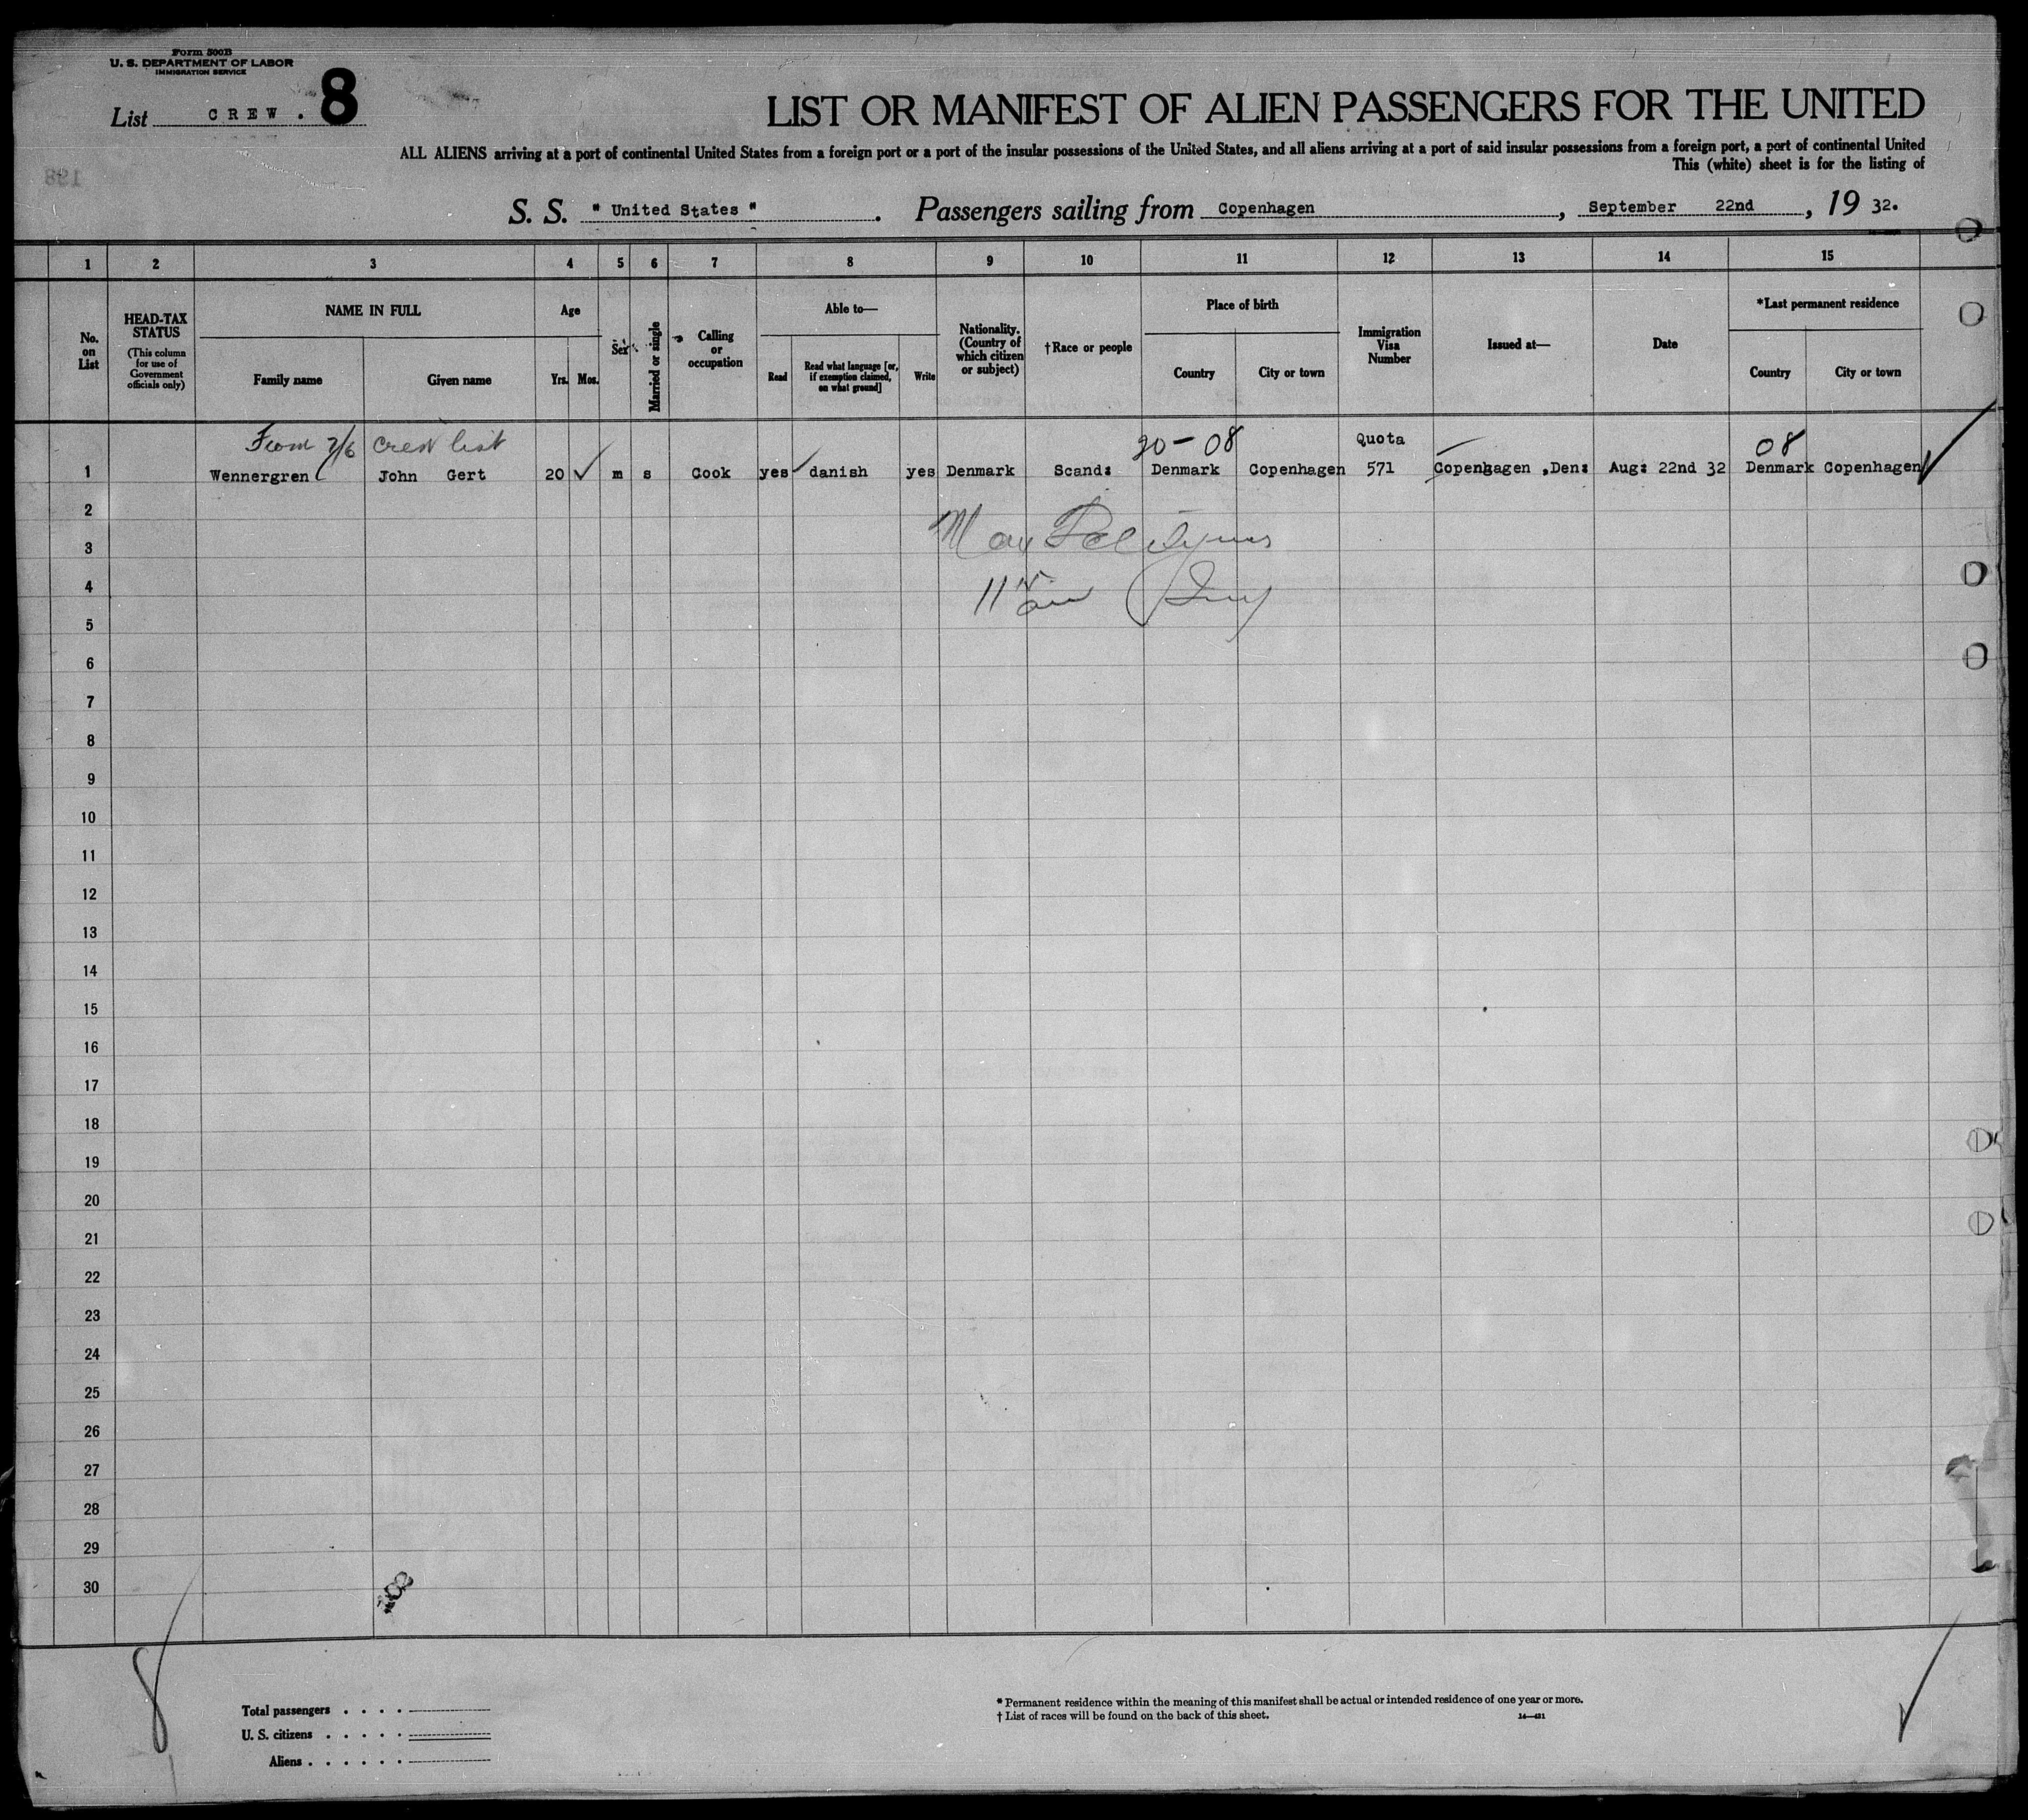 Form 500B
U. S. DEPARTMENT OF LABOR
IMMIGRATION SERVICE
List CREW. 8
LIST OR MANIFEST OF ALIEN PASSENGERS FOR THE UNITED
ALL ALIENS arriving at a port of continental United States from a foreign port or a port of the insular possessions of the United States, and all aliens arriving at a port of said insular possessions from a foreign port, a port of continental United
This (white) sheet is for the listing of
S. S. "United States". Passengers sailing from Copenhagen, September 22nd, 1932.
1 2 3 4 5 6 7 8 9 10 11 12 13 14 15
No. on List
HEAD-TAX STATUS
(This column for use of Government officials only)
NAME IN FULL
Family name
Given name
Age
Yrs. Mos.
Sex
Married or single
Calling or occupation
Able to—
Read
Read what language [or, if exemption claimed, on what ground]
Write
Nationality. (Country of which citizen or subject)
†Race or people
Place of birth
Country
City or town
Immigration Visa Number
Issued at—
Date
*Last permanent residence
Country
City or town
From 7/6 crew list 20-08 Quota 08
1 Wennergren John Gert 20 m s Cook yes danish yes Denmark Scand: Denmark Copenhagen 571 Copenhagen ,Den: Aug: 22nd 32 Denmark Copenhagen
2
3
4
5
6
7
8
9
10
11
12
13
14
15
16
17
18
19
20
21
22
23
24
25
26
27
28
29
30
8
Total passengers . . . .
U. S. citizens . . . . .
Aliens . . . . . .
* Permanent residence within the meaning of this manifest shall be actual or intended residence of one year or more.
† List of races will be found on the back of this sheet.
14—431